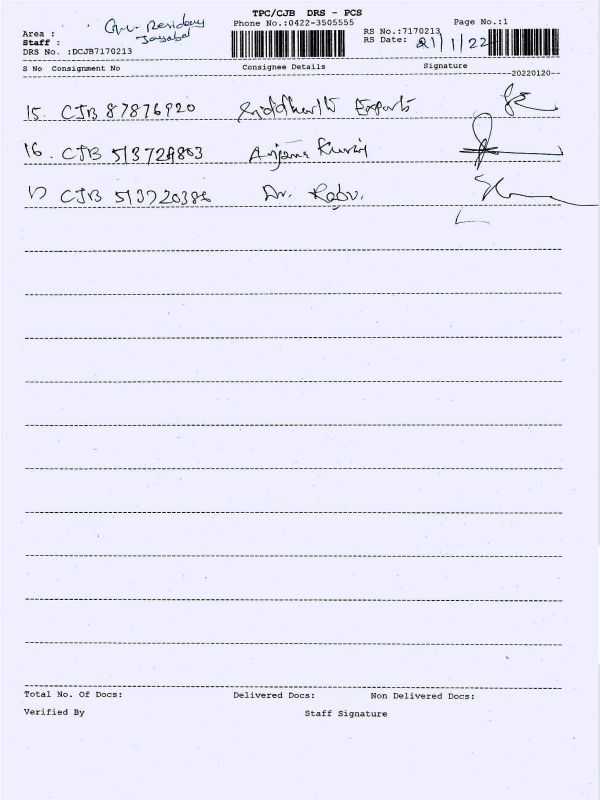 TPC/CJB DRS - PCS
Phone No.:0422-3505555 Page No.:1
Area : Residency
Staff :
DRS No. :DCJB7170213
RS No.:7170213
RS Date: 21/1/22
S No Consignment No Consignee Details Signature
--20220120--
15. CJB 87876920 Siddharth Exports
16. CJB 513724803 Anjana
17 CJB 513720386 Dr.
Total No. Of Docs: Delivered Docs: Non Delivered Docs:
Verified By Staff Signature